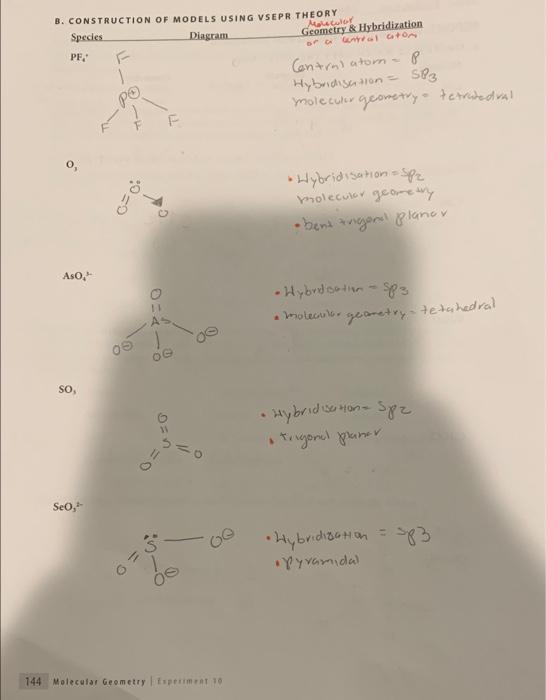 B. CONSTRUCTION OF MODELS USING VSEPR THEORY
Molecular
Species Diagram Geometry & Hybridization
of a central atom
PF₄⁺
F
P⊕
F F F
Central atom = P
Hybridisation = SP3
molecular geometry = tetratedral
O₃
Ö
O O
• Hybridisation = SP2
molecular geometry
• bent trigonal planar
AsO₄³⁻
O
As
O⊖ O⊖ O⊖
• Hybridsation = SP3
• molecular geometry = tetahedral
SO₃
O
S
O O
• Hybridisation = SP2
• trigonal planar
SeO₃²⁻
S̈ O⊖
O O⊖
• Hybridization = SP3
• Pyramidal
144 Molecular Geometry | Experiment 10